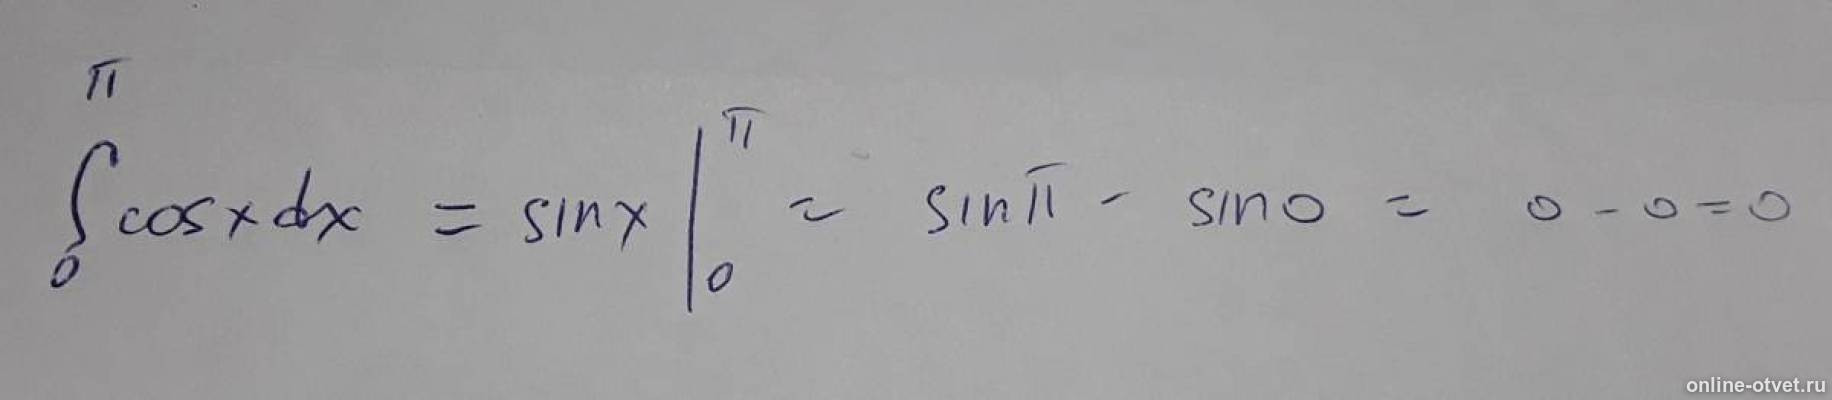 ∫₀^π cos x dx = sin x |₀^π = sin π - sin 0 = 0 - 0 = 0
online-otvet.ru